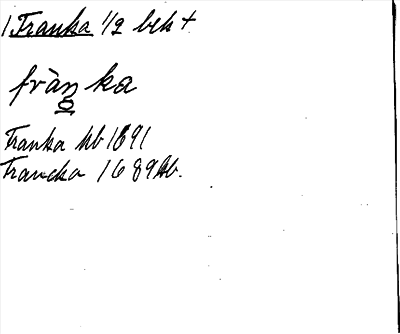 1 Franka 1/2 bek +
fràn̲ka
Franka kb 1691
Francka 1689 kb.